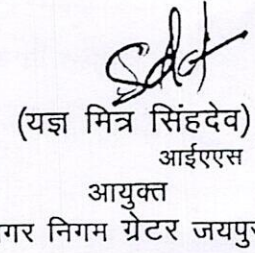 Sd/-
(यज्ञ मित्र सिंहदेव)
आईएएस
आयुक्त
नगर निगम ग्रेटर जयपुर